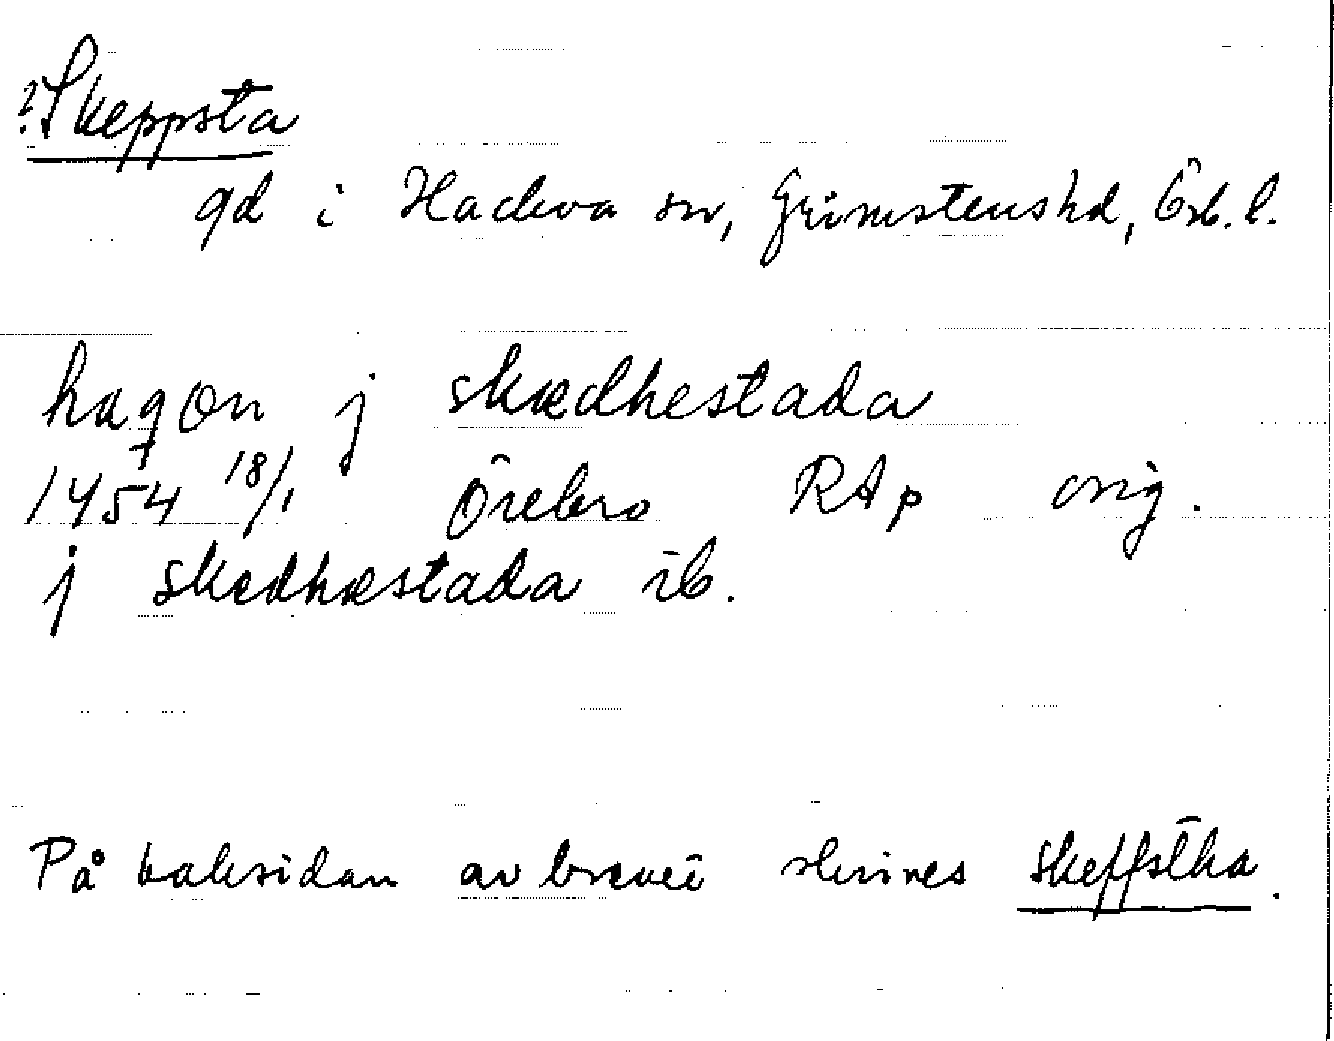 ?Skeppsta
gd i Hackva sn, Grimstenshd, Örb. l.
haqon j skædhestada
1454 18/1 Örebro RAp orig.
j skædhæstada ib.
På baksidan av brevet skrives skeffstha.